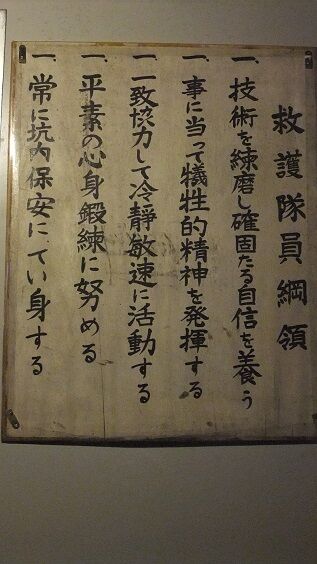 救護隊員綱領
一、技術を練磨し確固たる自信を養う
一、事に当って犠牲的精神を発揮する
一、一致協力して冷静敏速に活動する
一、平素の心身鍛練に努める
一、常に坑内保安にてい身する